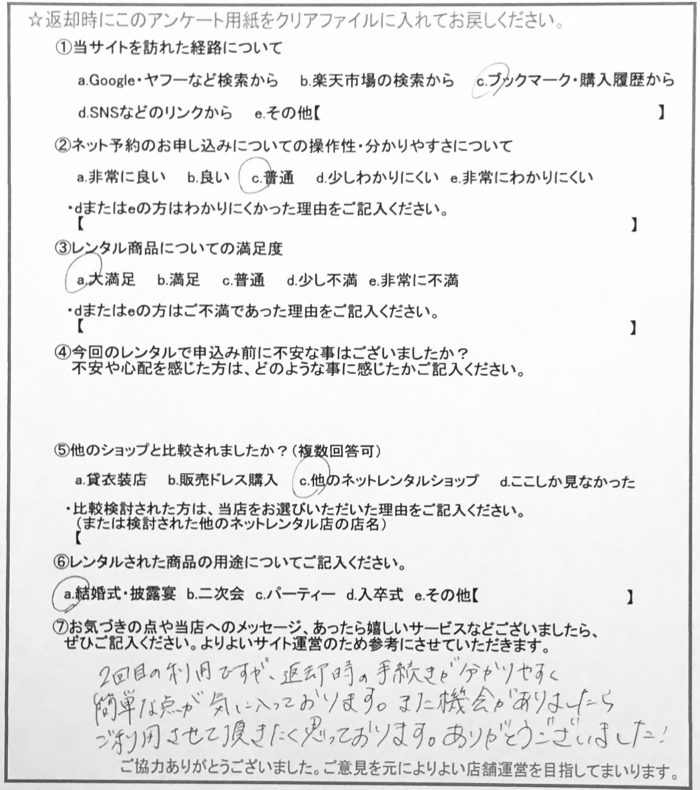 ☆返却時にこのアンケート用紙をクリアファイルに入れてお戻しください。
①当サイトを訪れた経路について
a.Google・ヤフーなど検索から b.楽天市場の検索から c.ブックマーク・購入履歴から
d.SNSなどのリンクから e.その他【 】
②ネット予約のお申し込みについての操作性・分かりやすさについて
a.非常に良い b.良い c.普通 d.少しわかりにくい e.非常にわかりにくい
・dまたはeの方はわかりにくかった理由をご記入ください。
【 】
③レンタル商品についての満足度
a.大満足 b.満足 c.普通 d.少し不満 e.非常に不満
・dまたはeの方はご不満であった理由をご記入ください。
【 】
④今回のレンタルで申込み前に不安な事はございましたか？
不安や心配を感じた方は、どのような事に感じたかご記入ください。
⑤他のショップと比較されましたか？(複数回答可)
a.貸衣装店 b.販売ドレス購入 c.他のネットレンタルショップ d.ここしか見なかった
・比較検討された方は、当店をお選びいただいた理由をご記入ください。
(または検討された他のネットレンタル店の店名)
【
⑥レンタルされた商品の用途についてご記入ください。
a.結婚式・披露宴 b.二次会 c.パーティー d.入卒式 e.その他【 】
⑦お気づきの点や当店へのメッセージ、あったら嬉しいサービスなどございましたら、
ぜひご記入ください。よりよいサイト運営のため参考にさせていただきます。
2回目の利用ですが、返却時の手続きが分かりやすく
簡単な点が気に入っております。また機会がありましたら
ご利用させて頂きたく思っております。ありがとうございました!
ご協力ありがとうございました。ご意見を元によりよい店舗運営を目指してまいります。